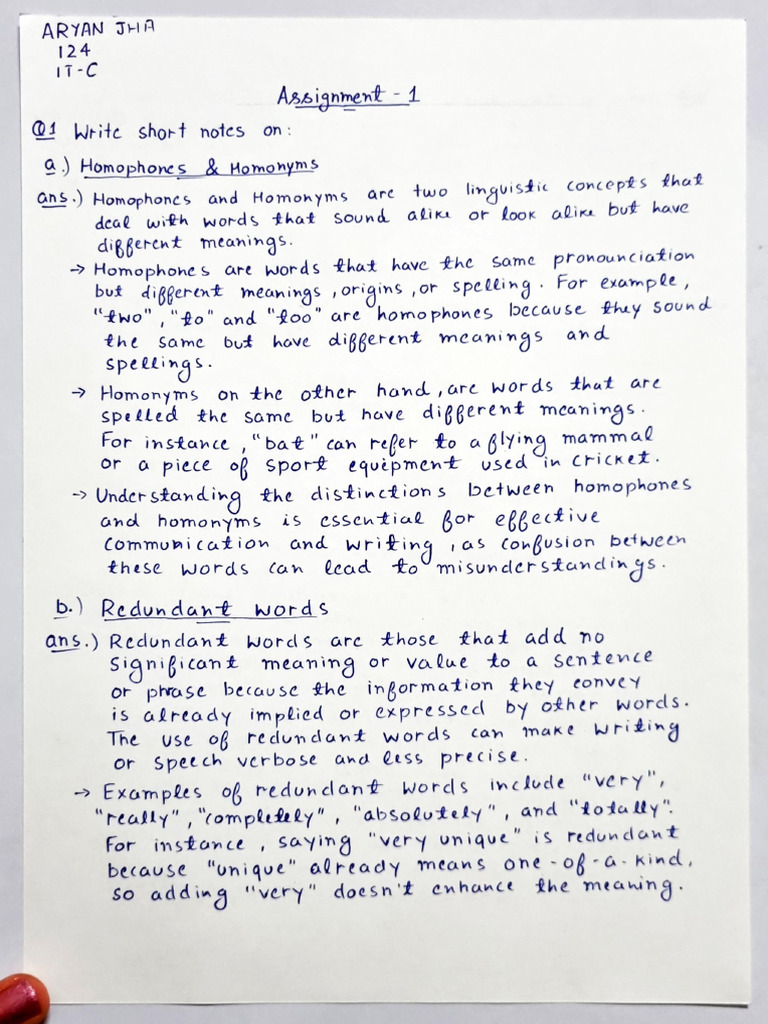 ARYAN JHA
124
IT-C
Assignment - 1
Q1 Write short notes on:
a.) Homophones & Homonyms
ans.) Homophones and Homonyms are two linguistic concepts that
deal with words that sound alike or look alike but have
different meanings.
→ Homophones are words that have the same pronounciation
but different meanings, origins, or spelling. For example,
"two", "to" and "too" are homophones because they sound
the same but have different meanings and
spellings.
→ Homonyms on the other hand, are words that are
spelled the same but have different meanings.
For instance, "bat" can refer to a flying mammal
or a piece of sport equipment used in cricket.
→ Understanding the distinctions between homophones
and homonyms is essential for effective
communication and writing, as confusion between
these words can lead to misunderstandings.
b.) Redundant words
ans.) Redundant words are those that add no
significant meaning or value to a sentence
or phrase because the information they convey
is already implied or expressed by other words.
The use of redundant words can make writing
or speech verbose and less precise.
→ Examples of redundant words include "very",
"really", "completely", "absolutely", and "totally".
For instance, saying "very unique" is redundant
because "unique" already means one-of-a-kind,
so adding "very" doesn't enhance the meaning.